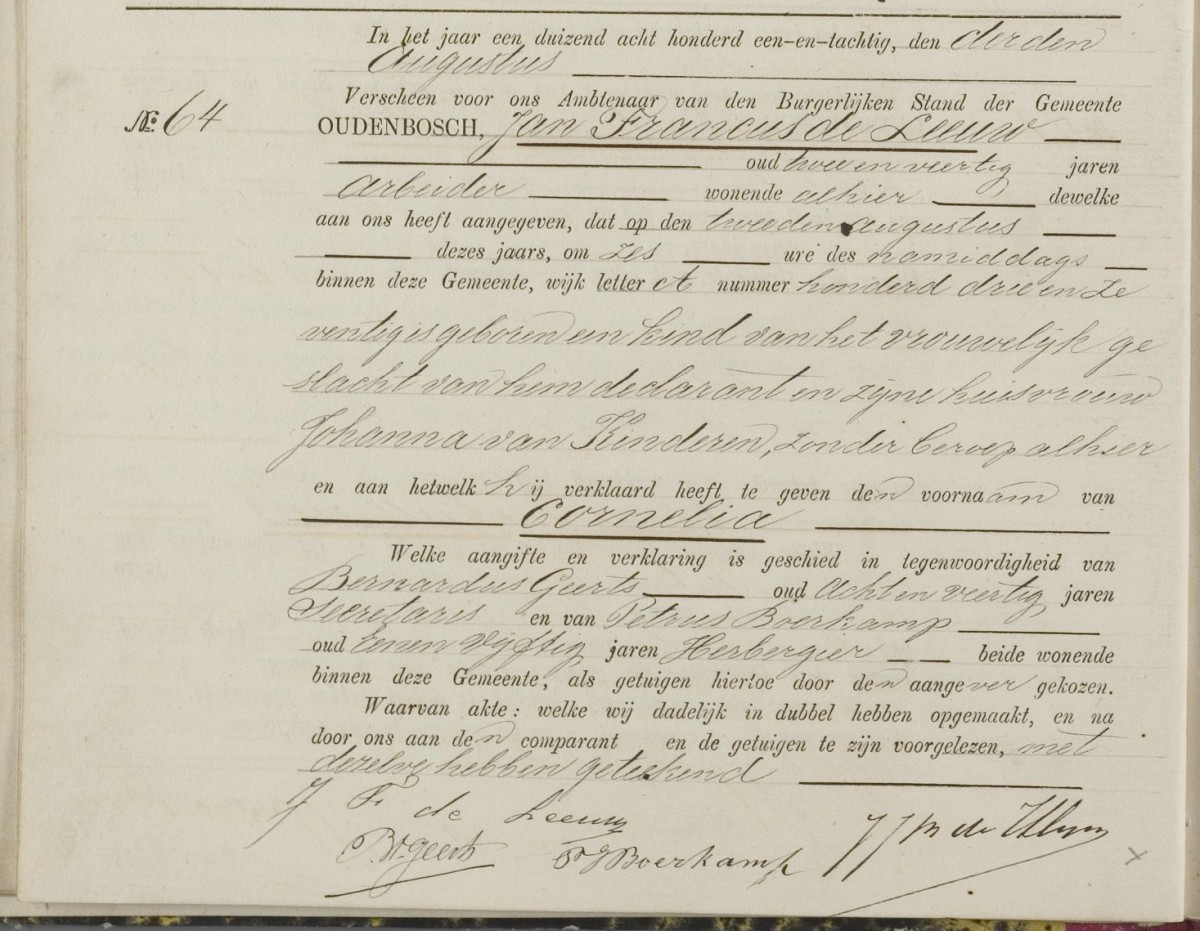 In het jaar een duizend acht honderd een-en-tachtig, den derden
Augustus
Verscheen voor ons Ambtenaar van den Burgerlijken Stand der Gemeente
No. 64
OUDENBOSCH, Jan Francus de Leeuw
oud twee en veertig jaren
Arbeider wonende alhier dewelke
aan ons heeft aangegeven, dat op den tweeden augustus
dezes jaars, om zes ure des namiddags
binnen deze Gemeente, wijk letter A nummer honderd drie en ze
ventig is geboren een kind van het vrouwelijk ge
slacht van hem declarant en zijne huisvrouw
Johanna van Kinderen, zonder beroep alhier
en aan hetwelk hij verklaard heeft te geven den voornaam van
Cornelia
Welke aangifte en verklaring is geschied in tegenwoordigheid van
Bernardus Geerts oud Acht en veertig jaren
Secretaris en van Petrus Boerkamp
oud Een en Vijftig jaren Herbergier beide wonende
binnen deze Gemeente, als getuigen hiertoe door den aangever gekozen.
Waarvan akte: welke wij dadelijk in dubbel hebben opgemaakt, en na
door ons aan den comparant en de getuigen te zijn voorgelezen, met
dezelve hebben geteekend
J F de Leeuw
Br. Geerts P J Boerkamp